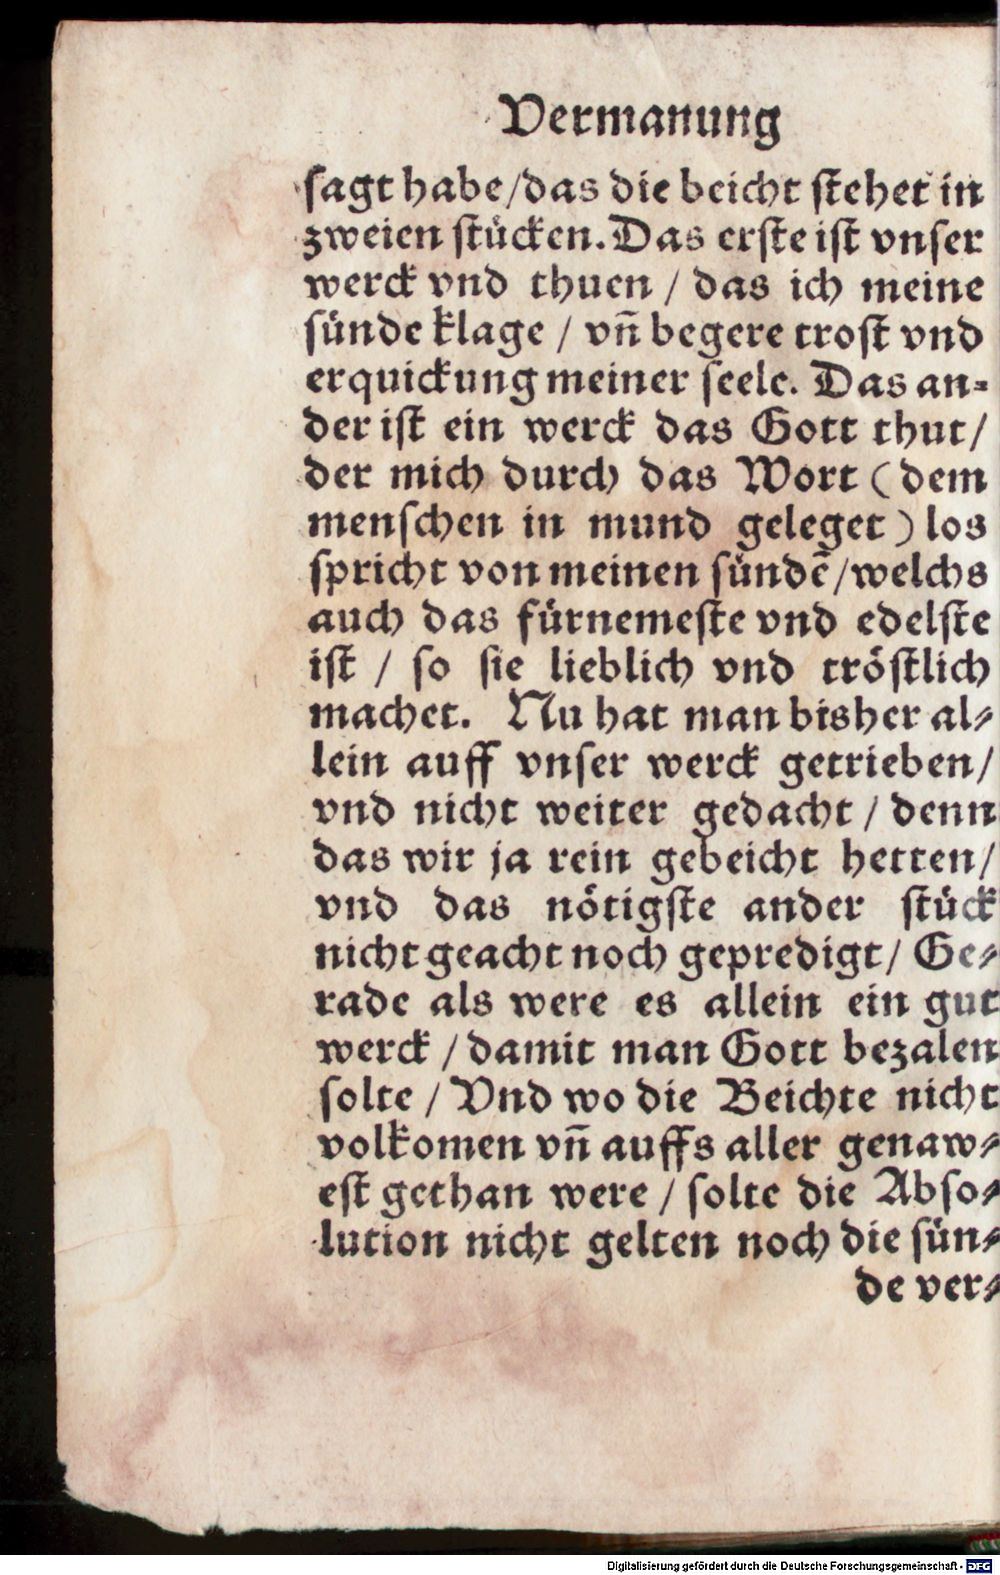 Vermanung
ſagt habe/das die beicht ſtehet in
zweien ſtücken. Das erſte iſt vnſer
werck vnd thuen / das ich meine
ſünde klage / vñ begere troſt vnd
erquickung meiner ſeele. Das an-
der iſt ein werck das Gott thut/
der mich durch das Wort (dem
menſchen in mund geleget) los
ſpricht von meinen ſündē/welchs
auch das fürnemeſte vnd edelſte
iſt / ſo ſie lieblich vnd tröſtlich
machet. Nu hat man bisher al-
lein auff vnſer werck getrieben/
vnd nicht weiter gedacht / denn
das wir ja rein gebeicht hetten/
vnd das nötigſte ander ſtück
nicht geacht noch gepredigt/ Ge-
rade als were es allein ein gut
werck / damit man Gott bezalen
ſolte / Vnd wo die Beichte nicht
volkomen vñ auffs aller genaw-
eſt gethan were / ſolte die Abſo-
lution nicht gelten noch die ſün-
de ver-
Digitalisierung gefördert durch die Deutsche Forschungsgemeinschaft - DFG